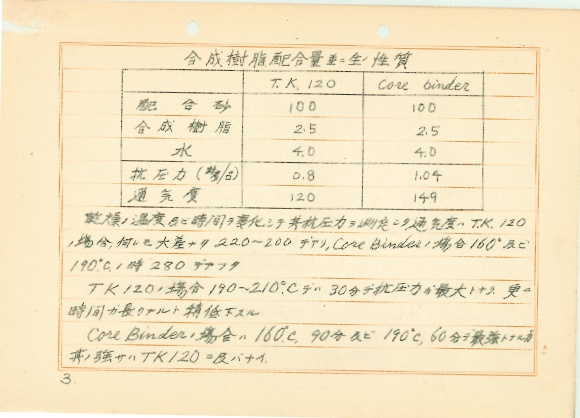 合成樹脂配合量並ニ生ノ性質
T.K. 120 Core binder
配合砂 100 100
合成樹脂 2.5 2.5
水 4.0 4.0
抗圧力 0.8 1.04
通気度 120 149
乾燥ノ温度及ビ時間ヲ変化シテ其抗圧力ヲ測定シタ通気度ハ T.K. 120
ノ場合,何レモ大差ナク 220~200 デアリ, Core Binder ノ場合 160° 及ビ
190°C ノ時 280 デアッタ
TK 120 ノ場合 190~210°C デハ 30分デ抗圧力ガ最大トナリ 更ニ
時間ガ長クナルト 稍低下スル
Core Binder ノ場合ハ 160°C, 90分 及ビ 190°C, 60分デ最強トナルガ
其ノ強サハ TK120 ニ及バナイ
3